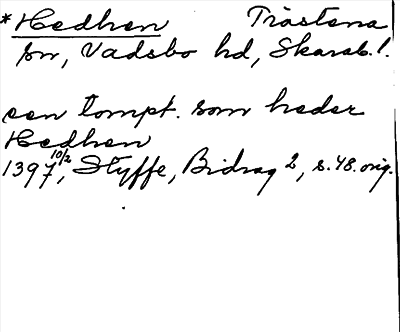 *Hedhen Trästena
sn, Vadsbo hd, Skarab. l.
een tompt. som heder
Hedhen
1397 10/2, Styffe, Bidrag 2, s. 48. orig.